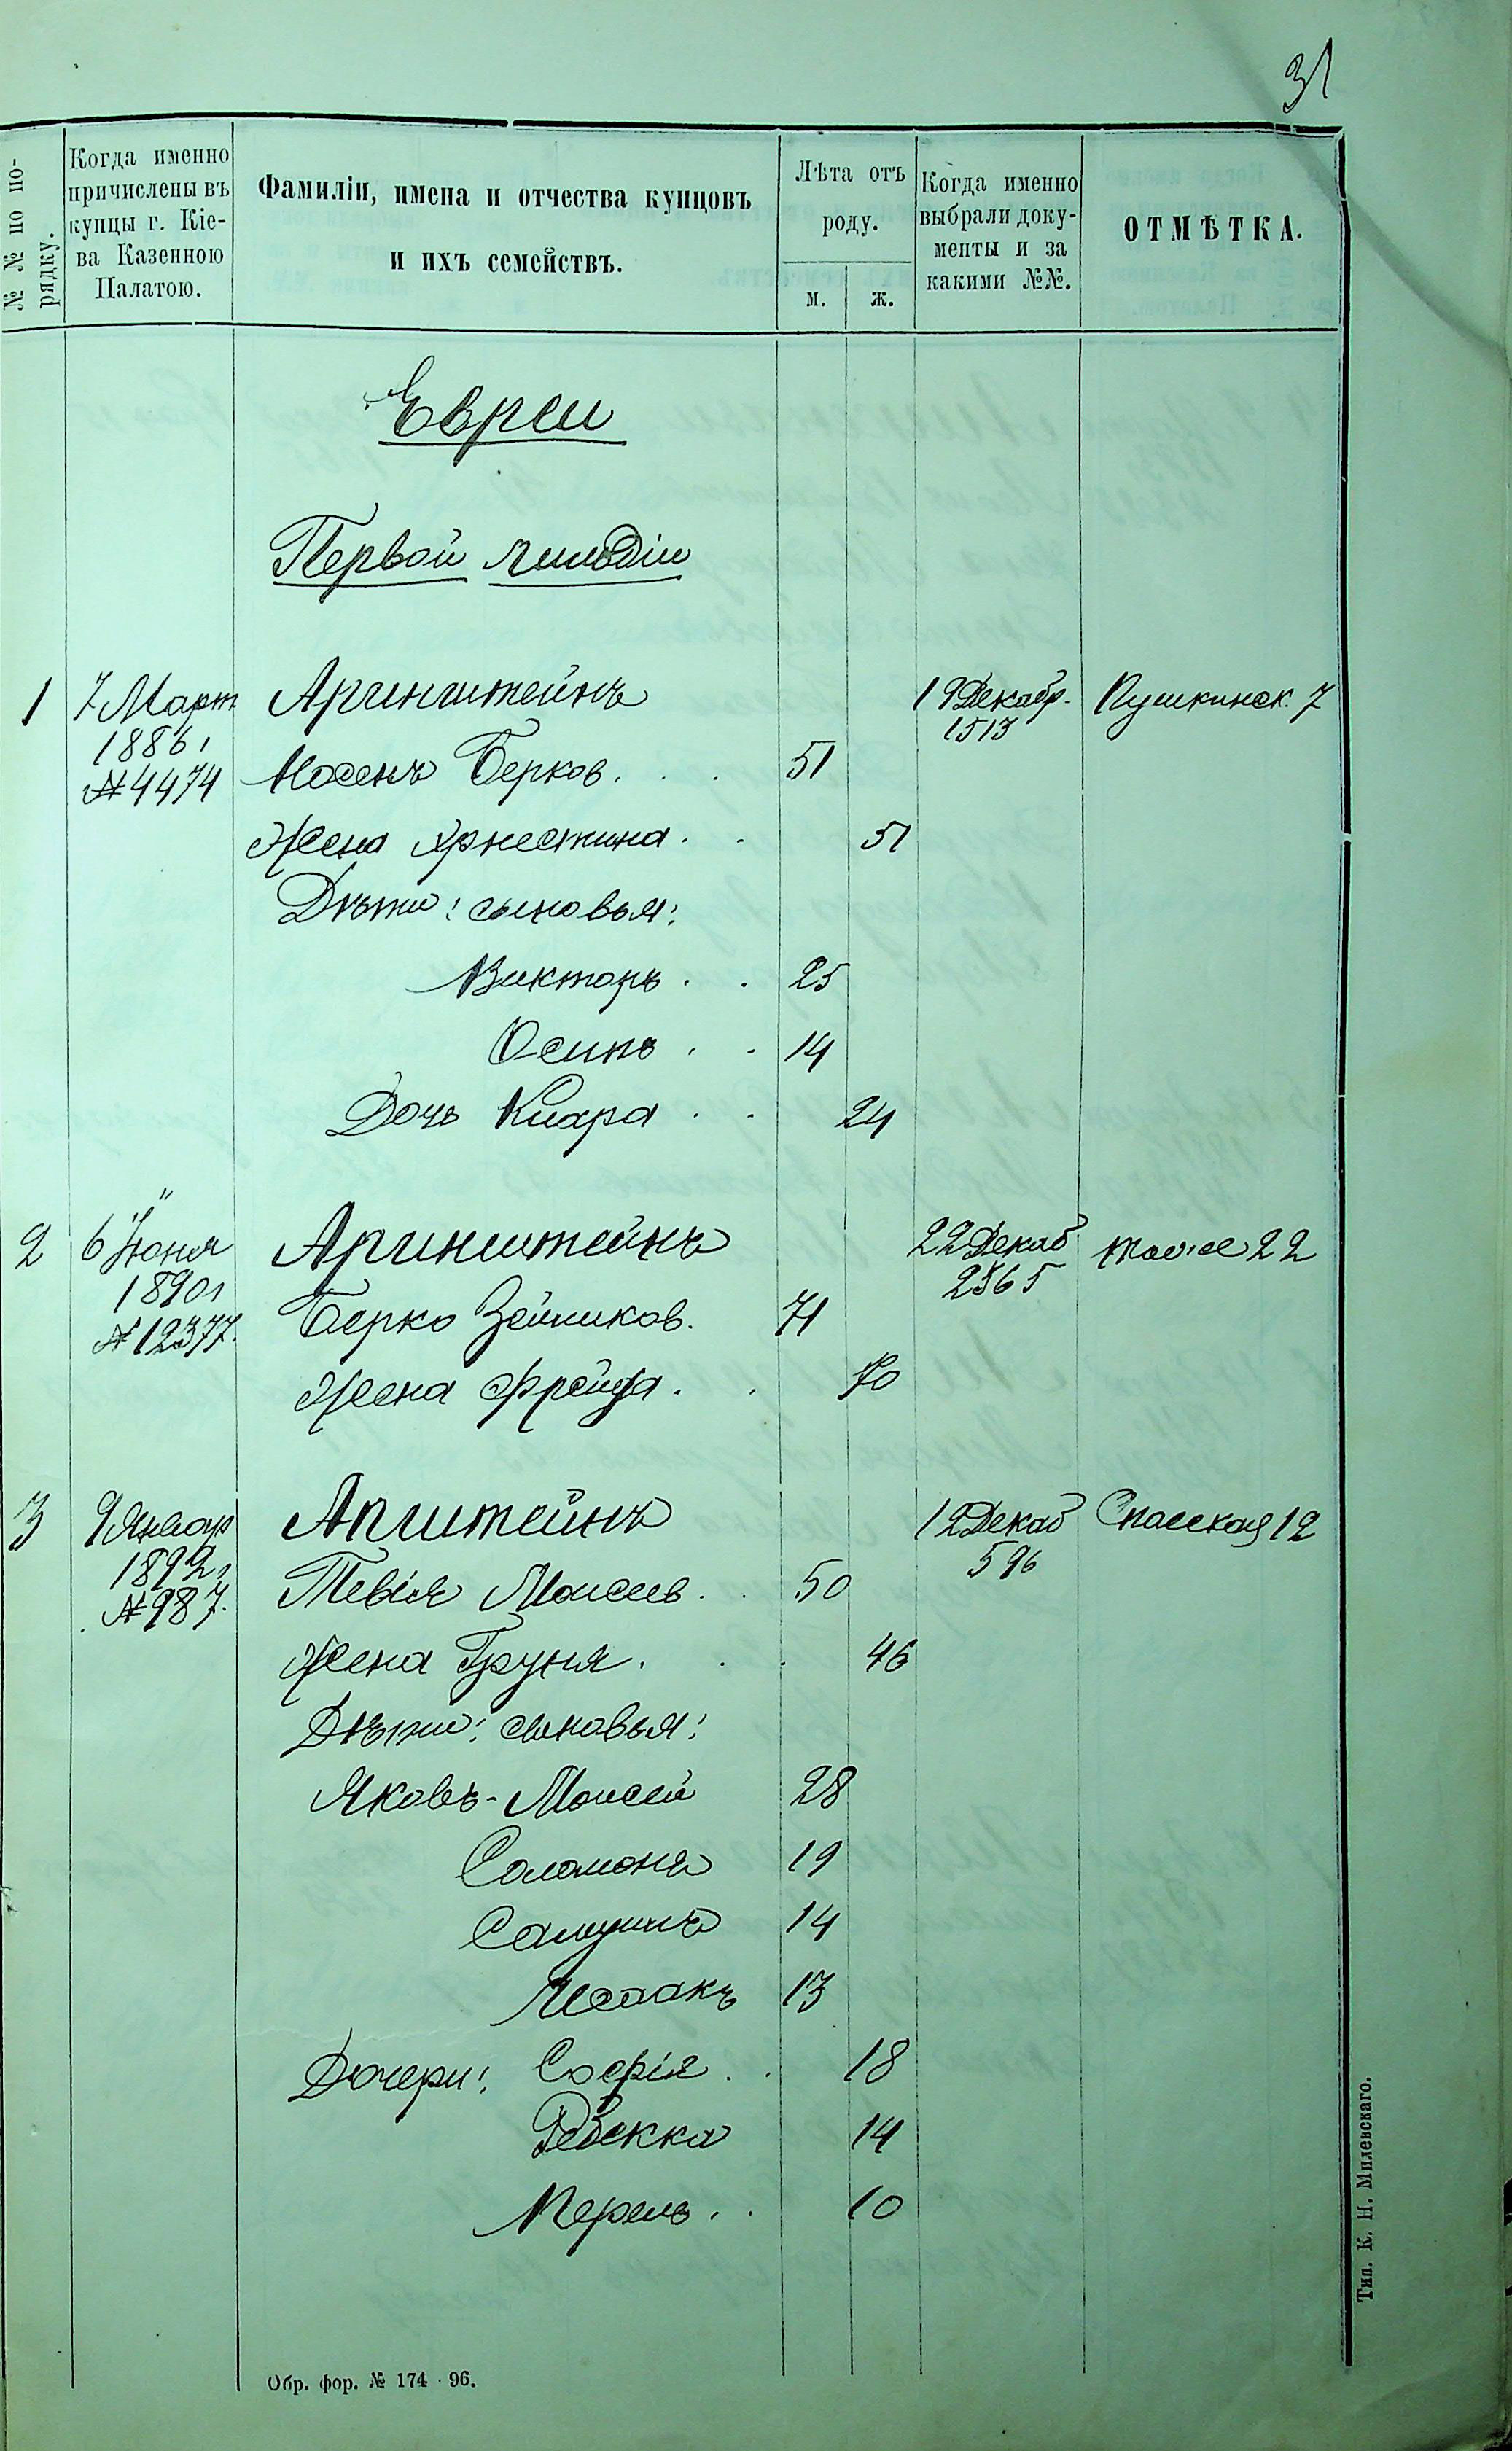 31
№ № по по-
рядку.
Когда именно
причислены въ
купцы г. Кіе-
ва Казенною
Палатою.
Фамиліи, имена и отчества купцовъ
и ихъ семействъ.
Лѣта отъ
роду.
м. ж.
Когда именно
выбрали доку-
менты и за
какими №№.
ОТМѢТКА.
Евреи
Первой гильдіи
1 7 Март Аринштейнъ 19 Декабр. Пушкинск. 7
1886, 1513
№ 4474 Берков. 51
Жена Эрнестина. 51
Дѣти: сыновья:
Викторъ 25
Осипъ 14
Дочь Клара 24
2 6 Іюня Аринштейнъ 22 Декаб 22
1890, 2365
№ 12377. Берко Зейликов. 71
Жена Фрейда. 70
3 9 Январ Апштейнъ 12 Декаб Спасская 12
1892, 596
№ 987. Тевія Моисеев. 50
Жена Груня. 46
Дѣти: сыновья:
Яковъ-Моисей 28
Соломонъ 19
Самуилъ 14
Исаакъ 13
Дочери: Софія 18
Ревекка 14
Перель 10
Обр. фор. № 174 - 96.
Тип. К. Н. Милевскаго.